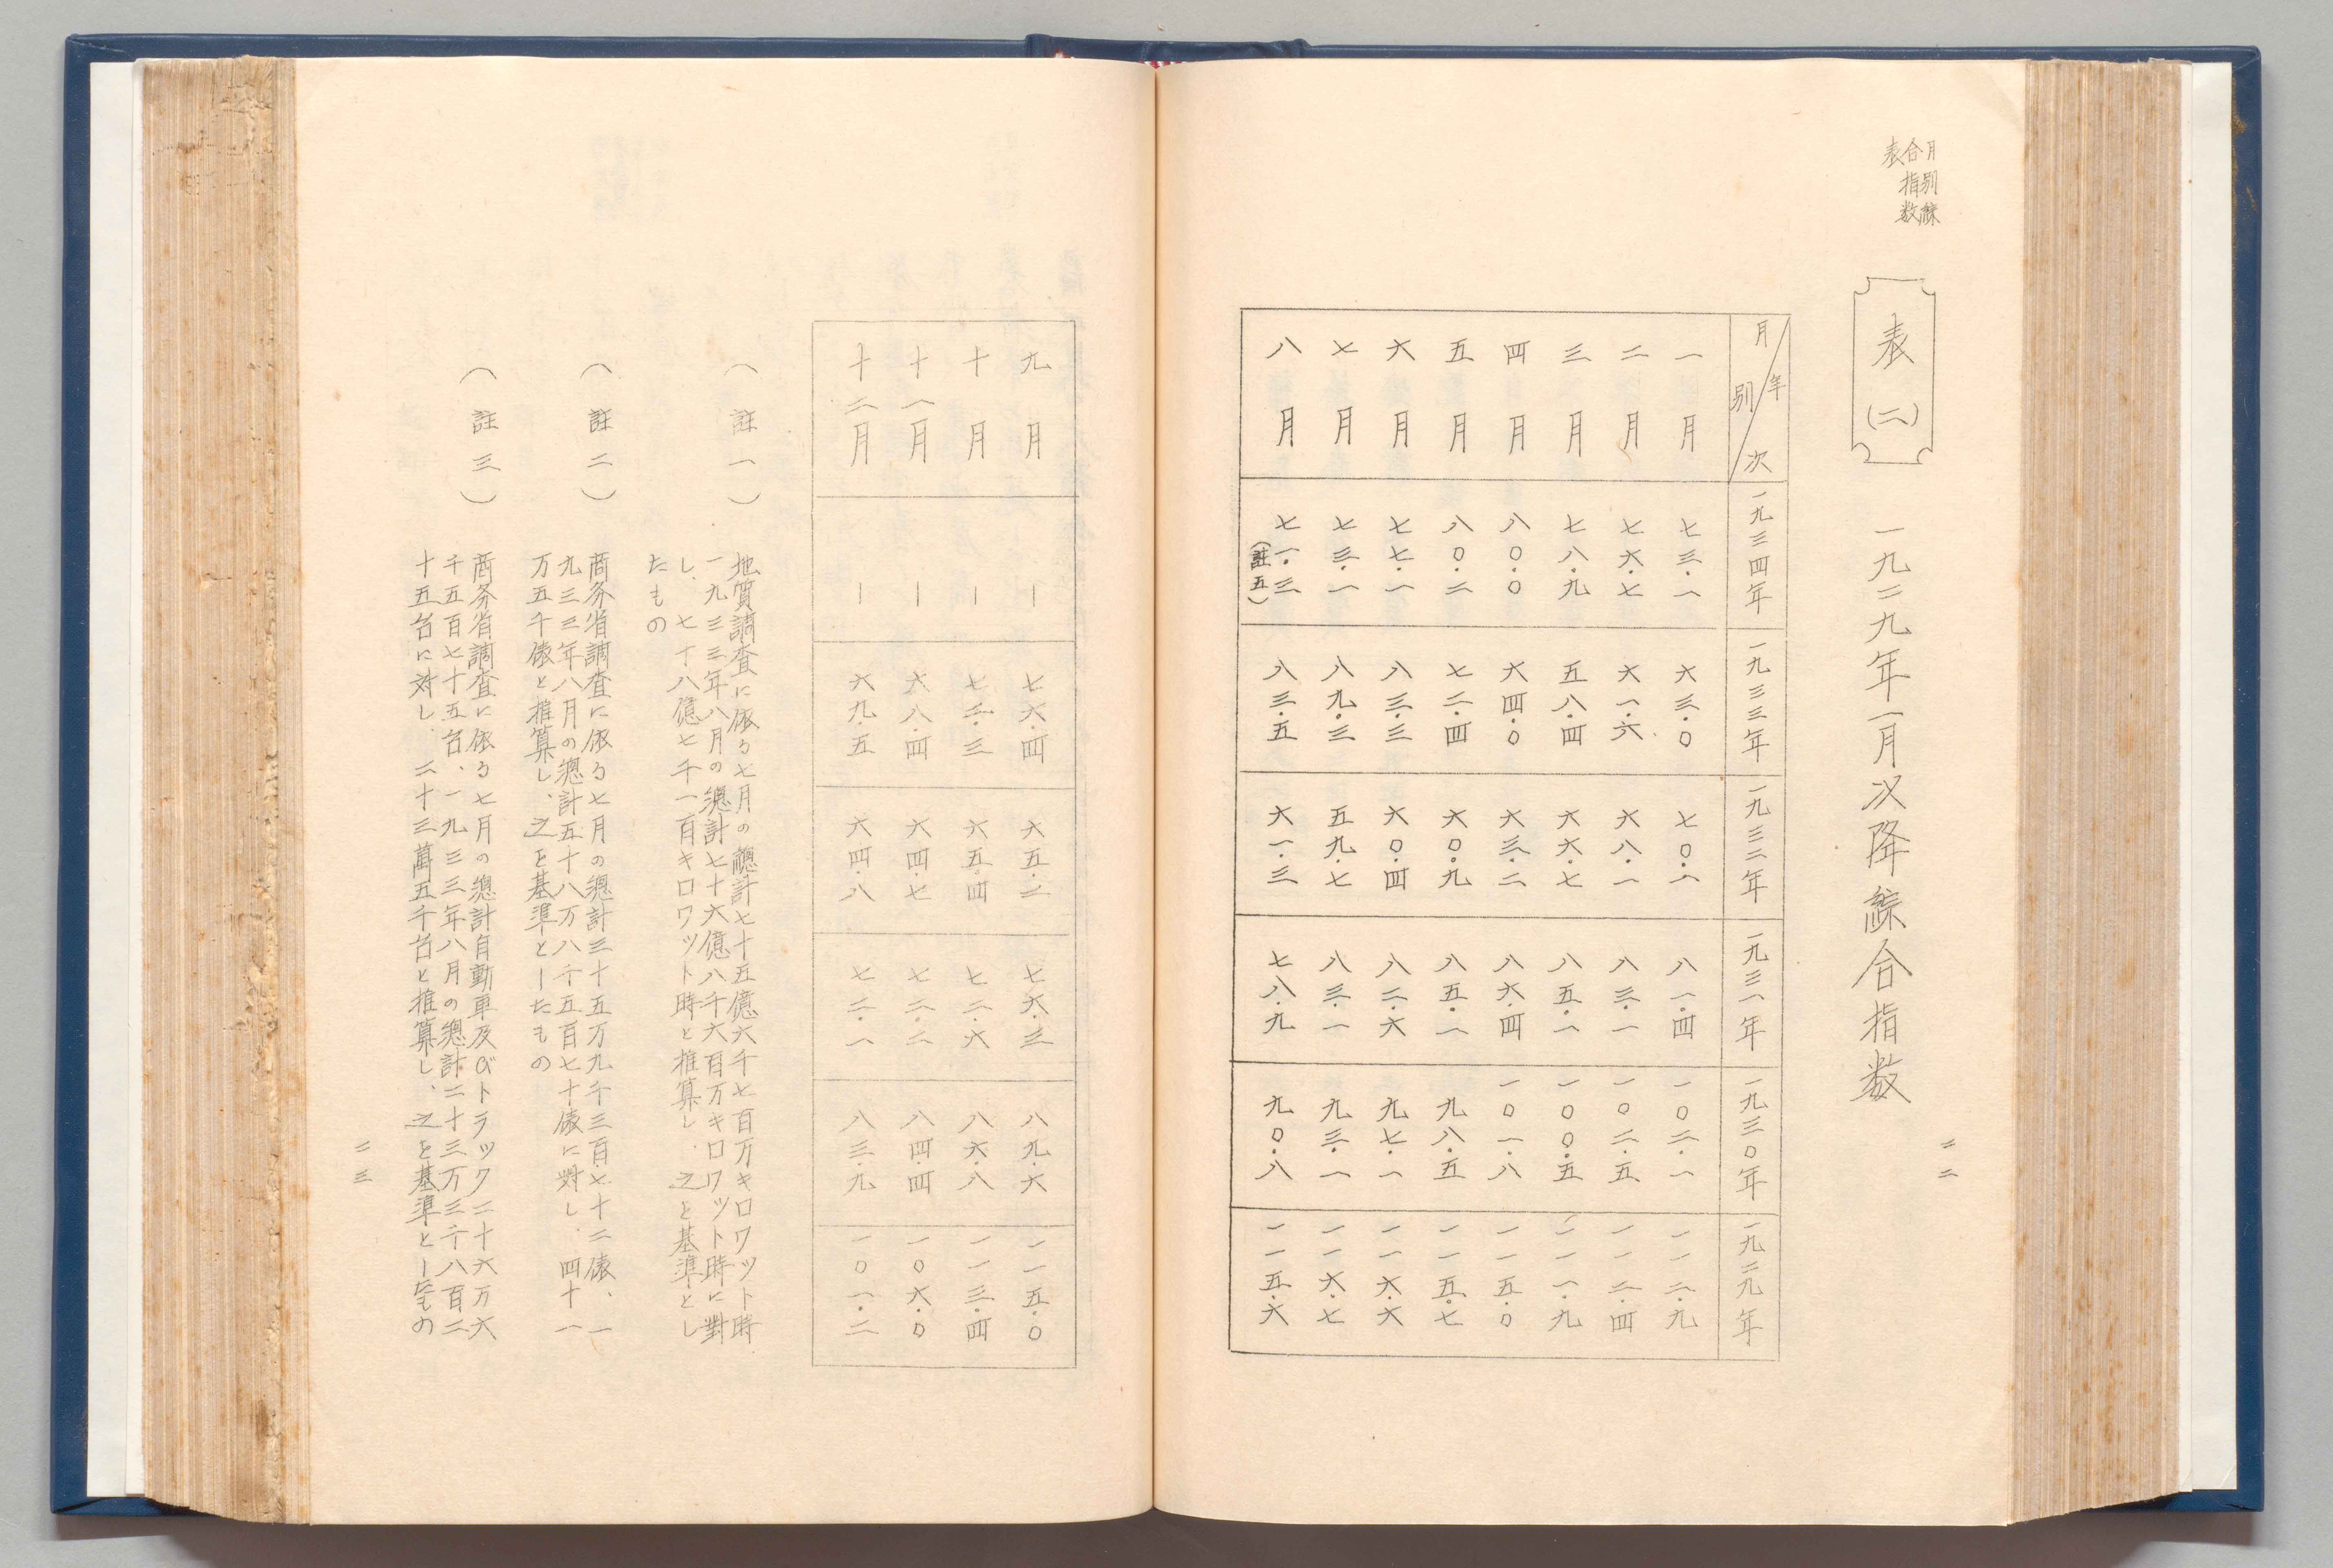 月別綜
合指数
表
表(二)
一九二九年一月以降綜合指数
二二
月別 年次 一九三四年 一九三三年 一九三二年 一九三一年 一九三〇年 一九二九年
一月 七三・一 六三・〇 七〇・一 八一・四 一〇二・一 一一二・九
二月 七六・七 六一・六 六八・一 八三・一 一〇二・五 一一二・四
三月 七八・九 五八・四 六六・七 八五・一 一〇〇・五 一一一・九
四月 八〇・〇 六四・〇 六三・二 八六・四 一〇一・八 一一五・〇
五月 八〇・二 七二・四 六〇・九 八五・一 九八・五 一一五・七
六月 七七・一 八三・三 六〇・四 八二・六 九七・一 一一六・六
七月 七三・一 八九・三 五九・七 八三・一 九三・一 一一六・七
八月 七一・三 八三・五 六一・三 七八・九 九〇・八 一一五・六
(註五)
九月 ー 七六・四 六五・二 七六・三 八九・六 一一五・〇
十月 ー 七・三 六五・四 七二・六 八六・八 一一三・四
十一月 ー 六八・四 六四・七 七二・二 八四・四 一〇六・〇
十二月 ー 六九・五 六四・八 七二・一 八三・九 一〇一・二
(註一) 地質調査に依る七月の總計七十五億六千七百万キロワット時
一九三三年八月の總計七十六億八千六百万キロワット時に對
し、七十八億七千一百キロワット時と推算し、之を基準とし
たもの
(註二) 商务省調査に依る七月の總計三十五万九千三百七十二俵、一
九三三年八月の總計五十八万八千五百七十俵に對し、四十一
万五千俵と推算し、之を基準としたもの
(註三) 商务省調査に依る七月の總計自動車及びトラック二十六万六
千五百七十五台、一九三三年八月の總計二十三万三千八百二
十五台に対し、二十三萬五千台と推算し、之を基準としたもの
二三